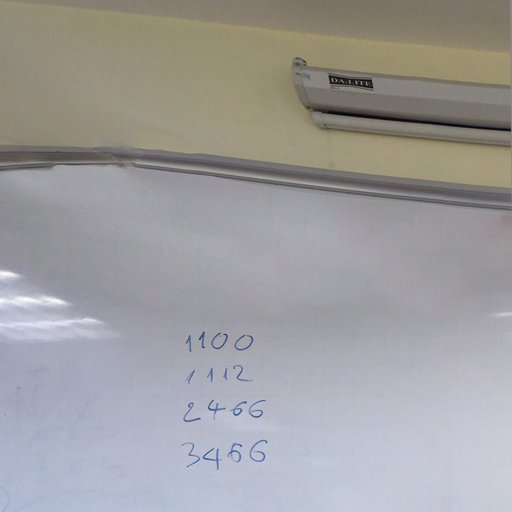 DA-LITE
1100
1112
2466
3466